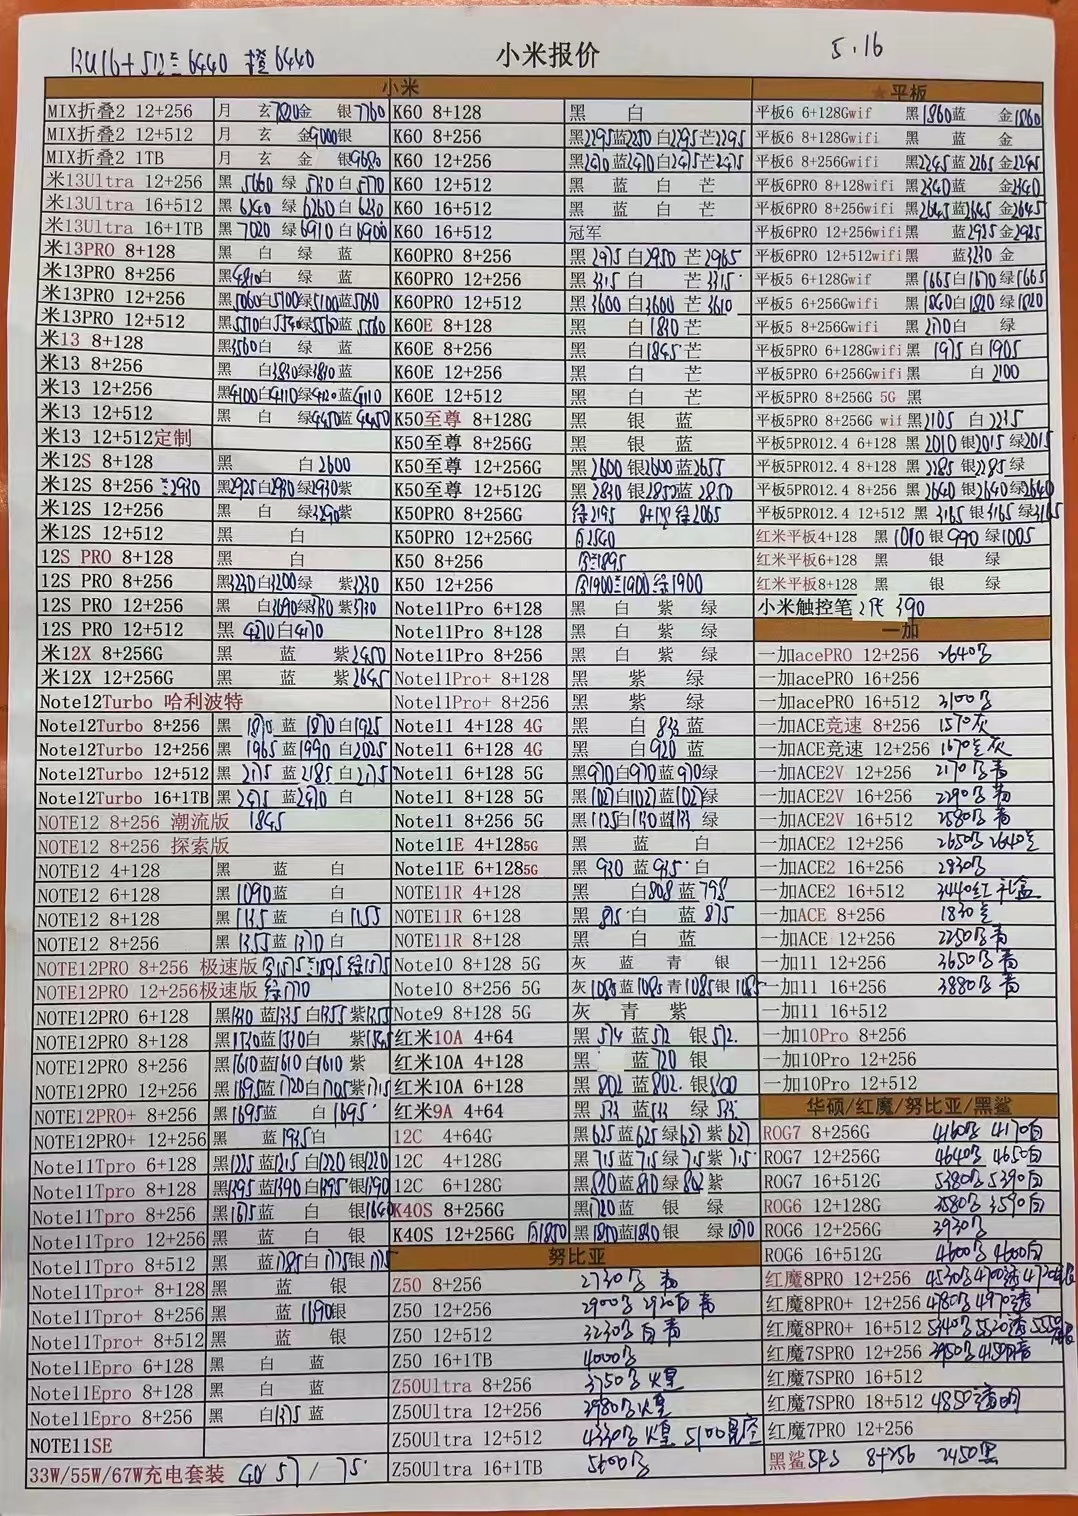 RU16+512兰6440 橙6440
小米报价
5.16
小米
MIX折叠2 12+256 月 玄7820金 银7760
MIX折叠2 12+512 月 玄 金9000银
MIX折叠2 1TB 月 玄 金 银9680
米13Ultra 12+256 黑 5660 绿 5730 白5770
米13Ultra 16+512 黑 6240 绿 6260 白 6230
米13Ultra 16+1TB 黑 7020 绿 6910 白 6900
米13PRO 8+128 黑 白 绿 蓝
米13PRO 8+256 黑4810白 绿 蓝
米13PRO 12+256 黑5060白5100绿5100蓝5030
米13PRO 12+512 黑5510白5540绿5560蓝 5560
米13 8+128 黑3560白 绿 蓝
米13 8+256 白3830绿3810 蓝
米13 12+256 黑4100白4110绿4120蓝4110
米13 12+512 黑 白 绿4450蓝4450
米13 12+512定制
米12S 8+128 黑 白2600
米12S 8+256 兰2930 黑2925白2930绿2930紫
米12S 12+256 黑 白 绿3290紫
米12S 12+512 黑 白
12S PRO 8+128 黑 白
12S PRO 8+256 黑3230白3200绿 紫3230
12S PRO 12+256 黑 白3690绿3730 紫3730
12S PRO 12+512 黑 4270白4170
米12X 8+256G 黑 蓝 紫2450
米12X 12+256G 黑 蓝 紫2645
Note12Turbo 哈利波特
Note12Turbo 8+256 黑 1870 蓝 1870白1925
Note12Turbo 12+256 黑 1965 蓝1990 白2025
Note12Turbo 12+512 黑 2175 蓝2185 白2175
Note12Turbo 16+1TB 黑 2475 蓝2470 白
NOTE12 8+256 潮流版 1845
NOTE12 8+256 探索版
NOTE12 4+128 黑 蓝 白
NOTE12 6+128 黑1090蓝 白
NOTE12 8+128 黑1135蓝 白1155
NOTE12 8+256 黑 1355蓝1370 白
NOTE12PRO 8+256 极速版
NOTE12PRO 12+256极速版 绿1770
NOTE12PRO 6+128 黑1330 蓝1335 白1355 紫1355
NOTE12PRO 8+128 黑1530蓝1530白 紫1545
NOTE12PRO 8+256 黑1610蓝1610白1610 紫
NOTE12PRO 12+256 黑1695蓝1720白1705紫1715
NOTE12PRO+ 8+256 黑1695蓝 白 1695
NOTE12PRO+ 12+256 黑 蓝1935白
Note11Tpro 6+128 黑1225 蓝1215 白1220 银1220
Note11Tpro 8+128 黑1395蓝1390白1395银1390
Note11Tpro 8+256 黑1675蓝 白 银1640
Note11Tpro 12+256 黑 蓝 白 银
Note11Tpro 8+512 黑 蓝1785白1775银1775
Note11Tpro+ 8+128 黑 蓝 银
Note11Tpro+ 8+256 黑 蓝 1190银
Note11Tpro+ 8+512 黑 蓝 银
Note11Epro 6+128 黑 白 蓝
Note11Epro 8+128 黑 白 蓝
Note11Epro 8+256 黑 白1375 蓝
NOTE11SE
33W/55W/67W充电套装 40 57 / 75
K60 8+128 黑 白
K60 8+256 黑2295蓝2280 白2295芒2295
K60 12+256 黑2470蓝2470白2475芒2475
K60 12+512 黑 蓝 白 芒
K60 16+512 黑 蓝 白 芒
K60 16+512 冠军
K60PRO 8+256 黑 2975 白2950 芒2965
K60PRO 12+256 黑 3315 白 芒3315
K60PRO 12+512 黑3600 白3600 芒3610
K60E 8+128 黑 白1830 芒
K60E 8+256 黑 白1845 芒
K60E 12+256 黑 白 芒
K60E 12+512 黑 白 芒
K50至尊 8+128G 黑 银 蓝
K50至尊 8+256G 黑 银 蓝
K50至尊 12+256G 黑2600 银2600 蓝2655
K50至尊 12+512G 黑 2830 银2850蓝 2850
K50PRO 8+256G 绿2195 8+128 绿2065
K50PRO 12+256G 白2540
K50 8+256 兰1895
K50 12+256 1900兰1900绿1900
Note11Pro 6+128 黑 白 紫 绿
Note11Pro 8+128 黑 白 紫 绿
Note11Pro 8+256 黑 白 紫 绿
Note11Pro+ 8+128 黑 紫 绿
Note11Pro+ 8+256 黑 紫 绿
Note11 4+128 4G 黑 白 833 蓝
Note11 6+128 4G 黑 白920 蓝
Note11 6+128 5G 黑970白970 蓝970绿
Note11 8+128 5G 黑1027白1027蓝1027绿
Note11 8+256 5G 黑1125白1130蓝1133 绿
Note11E 4+128 5G 黑 蓝 白
Note11E 6+128 5G 黑 930 蓝 935 白
NOTE11R 4+128 黑 白808 蓝 798
NOTE11R 6+128 黑 875 白 蓝 875
NOTE11R 8+128 黑 白 蓝
Note10 8+128 5G 灰 蓝 青 银
Note10 8+256 5G 灰1085蓝1085 青1085银1085
Note9 8+128 5G 灰 青 紫
红米10A 4+64 黑 574 蓝572 银572
红米10A 4+128 黑 蓝 720 银
红米10A 6+128 黑 802 蓝802 银800
红米9A 4+64 黑 533 蓝533 绿 533
12C 4+64G 黑625 蓝625 绿627 紫 627
12C 4+128G 黑 715蓝715 绿715紫 715
12C 6+128G 黑810蓝810绿 802紫
K40S 8+256G 黑1720 蓝 银 绿
K40S 12+256G 白1850 黑1850蓝1830 银 绿1870
努比亚
Z50 8+256 2730 青
Z50 12+256 2900 2920白 青
Z50 12+512 3230 白 青
Z50 16+1TB 4000
Z50Ultra 8+256 3750
Z50Ultra 12+256 3980
Z50Ultra 12+512 4330 5100星空
Z50Ultra 16+1TB 5600
★平板
平板6 6+128Gwif 黑1860蓝 金1860
平板6 8+128Gwifi 黑 蓝 金
平板6 8+256Gwifi 黑2245蓝 2265 金2245
平板6PRO 8+128wifi 黑2340蓝 金2340
平板6PRO 8+256wifi 黑2645蓝2645 金2645
平板6PRO 12+256wifi 黑 蓝2925金2925
平板6PRO 12+512wifi 黑 蓝3230 金
平板5 6+128Gwif 黑1665白1670 绿1665
平板5 6+256Gwifi 黑1840白1820 绿1820
平板5 8+256Gwifi 黑2170白 绿
平板5PRO 6+128Gwifi 黑 1975 白1905
平板5PRO 6+256Gwifi 黑 白 2100
平板5PRO 8+256G 5G 黑
平板5PRO 8+256G wif 黑2105 白2235
平板5PRO12.4 6+128 黑 2010 银2015 绿2015
平板5PRO12.4 8+128 黑 2285 银2285 绿
平板5PRO12.4 8+256 黑 2640 银2640绿2640
平板5PRO12.4 12+512 黑 3165 银3165 绿3165
红米平板4+128 黑 1010 银990 绿1005
红米平板6+128 黑 银 绿
红米平板8+128 黑 银 绿
小米触控笔2代 390
一加
一加acePRO 12+256 2640
一加acePRO 16+256
一加acePRO 16+512 3100
一加ACE竞速 8+256 1570灰
一加ACE竞速 12+256 1670兰 灰
一加ACE2V 12+256 2170 青
一加ACE2V 16+256 2290 青
一加ACE2V 16+512 2580 青
一加ACE2 12+256 2650 2640兰
一加ACE2 16+256 2830
一加ACE2 16+512 3440红 礼盒
一加ACE 8+256 1830兰
一加ACE 12+256 2250 青
一加11 12+256 3650 青
一加11 16+256 3880 青
一加11 16+512
一加10Pro 8+256
一加10Pro 12+256
一加10Pro 12+512
华硕/红魔/努比亚/黑鲨
ROG7 8+256G 4160 4170白
ROG7 12+256G 4640 4650白
ROG7 16+512G 5380 5390白
ROG6 12+128G 3580 3590白
ROG6 12+256G 3930
ROG6 16+512G 4600 4600白
红魔8PRO 12+256 4530 4700透
红魔8PRO+ 12+256 4780 4970透
红魔8PRO+ 16+512 5340 5520透
红魔7SPRO 12+256 3950
红魔7SPRO 16+512
红魔7SPRO 18+512 4850透明
红魔7PRO 12+256
黑鲨5RS 8+256 2450黑